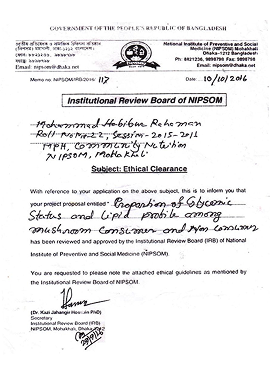 GOVERNMENT OF THE PEOPLE'S REPUBLIC OF BANGLADESH
National Institute of Preventive and Social
Medicine (NIPSOM) Mohakhali
Dhaka-1212 Bangladesh
Ph: 8821236, 9898798 Fax: 9898798
Email: nipsom@dhaka.net
Email: nipsom@dhaka.net
Memo no. NIPSOM/IRB/2016/ 117
Date: 10/10/2016
Institutional Review Board of NIPSOM
Mohammad Habibur Rahaman
Roll No MH-22, Session-2015-2016
MPH, Community Nutrition
NIPSOM, Mohakhali
Subject: Ethical Clearance
With reference to your application on the above subject, this is to inform you that
your project proposal entitled " Proportion of Glycemic
Status and Lipid profile among
mushroom Consumer and Non Consumer
has been reviewed and approved by the Institutional Review Board (IRB) of National
Institute of Preventive and Social Medicine (NIPSOM).
You are requested to please note the attached ethical guidelines as mentioned
by the Institutional Review Board of NIPSOM.
(Dr. Kazi Jahangir Hossain PhD)
Secretary
Institutional Review Board (IRB)
NIPSOM, Mohakhali, Dhaka-1212